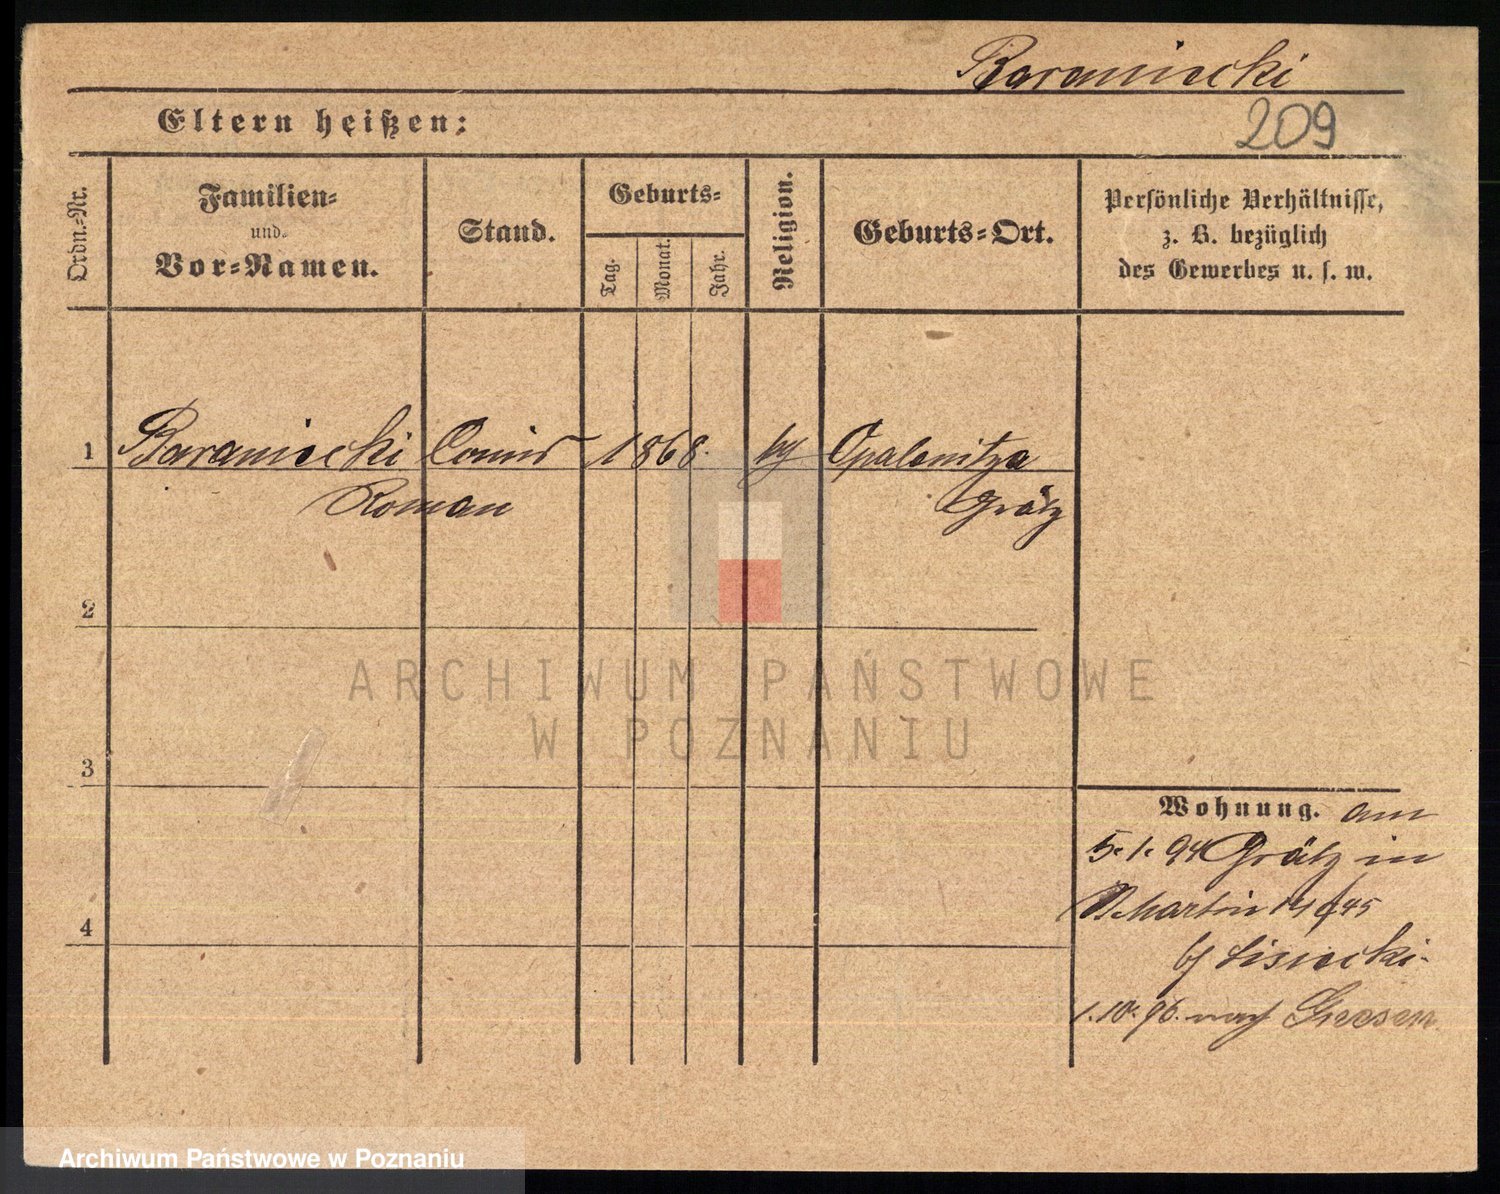 Baraniecki
Eltern heißen:
209
Ordn.-Nr.
Familien-
und
Vor-Namen.
Stand.
Geburts-
Tag.
Monat.
Jahr.
Religion.
Geburts-Ort.
Persönliche Verhältnisse,
z. B. bezüglich
des Gewerbes u. s. w.
1 Baraniecki Comis 1868. Opalenitza
Roman Grätz
2
ARCHIWUM PAŃSTWOWE
W POZNANIU
3
Wohnung. am
5.1.94 Grätz in
Martin 14/45
b/ Lisiecki
1.10.96. nach Gnesen
4
Archiwum Państwowe w Poznaniu